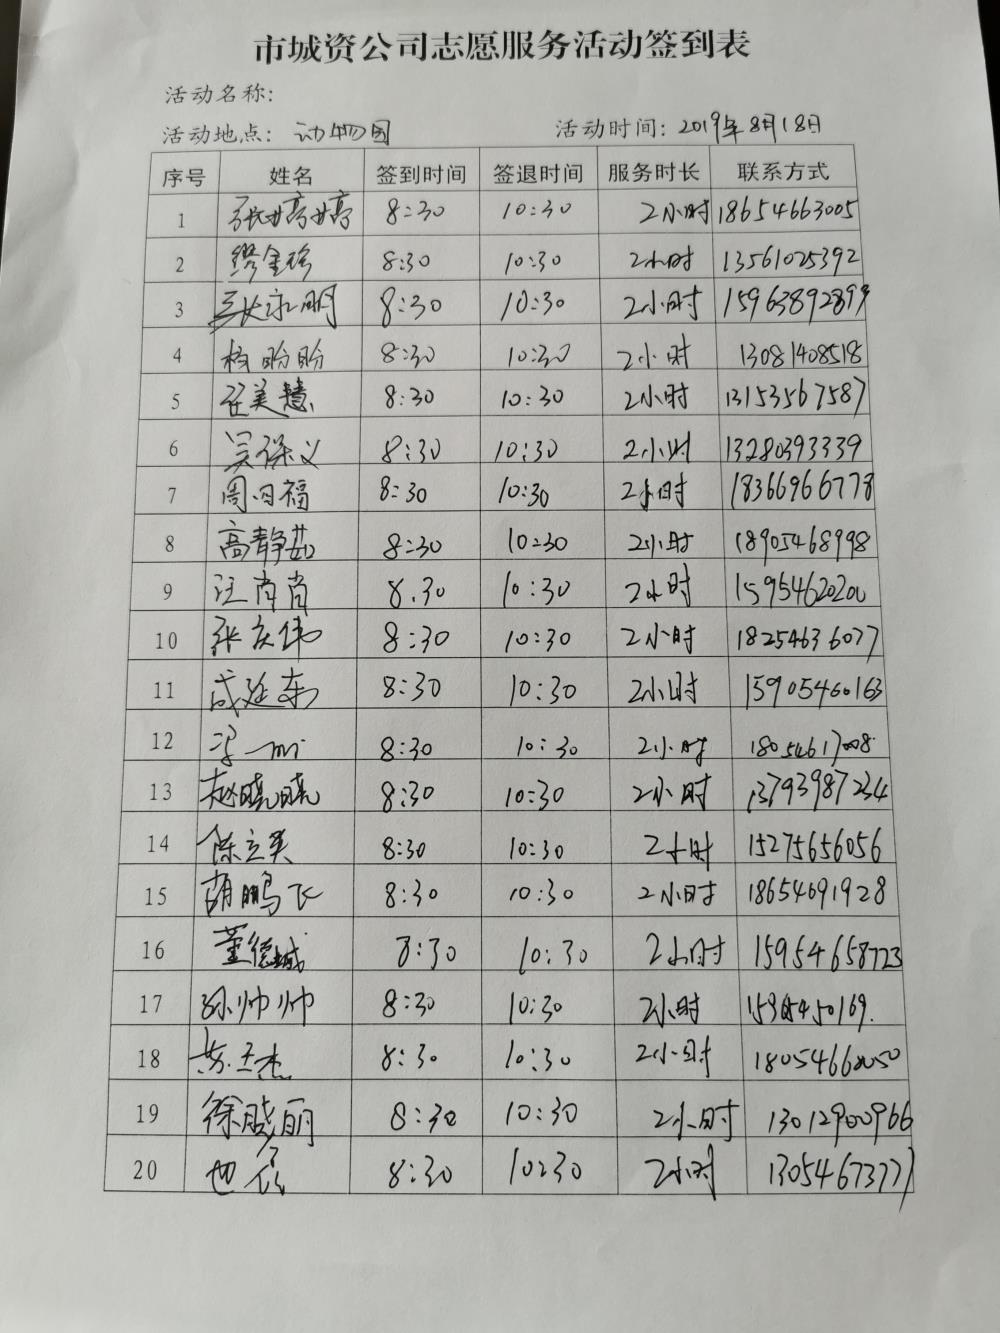 市城资公司志愿服务活动签到表
活动名称:
活动地点: 动物园 活动时间: 2019年8月18日
序号 姓名 签到时间 签退时间 服务时长 联系方式
1 张婷婷 8:30 10:30 2小时 18654663005
2 缪金珍 8:30 10:30 2小时 13561025392
3 张永明 8:30 10:30 2小时 15963892899
4 杨盼盼 8:30 10:30 2小时 13081408518
5 张美慧 8:30 10:30 2小时 13153567587
6 吴保义 8:30 10:30 2小时 13280393339
7 周日福 8:30 10:30 2小时 18366966778
8 高静茹 8:30 10:30 2小时 18905468998
9 汪肖肖 8.30 10:30 2小时 15954620200
10 张庆伟 8:30 10:30 2小时 18254636077
11 成延东 8:30 10:30 2小时 15905460163
12 8:30 10:30 2小时 18054617008
13 赵晓晓 8:30 10:30 2小时 13793987234
14 陈立英 8:30 10:30 2小时 15275656056
15 胡鹏飞 8:30 10:30 2小时 18654691928
16 董德城 8:30 10:30 2小时 15954658723
17 孙帅帅 8:30 10:30 2小时
18 苏玉杰 8:30 10:30 2小时 18054660050
19 徐晓丽 8:30 10:30 2小时 13012900966
20 8:30 10:30 2小时 13054673777